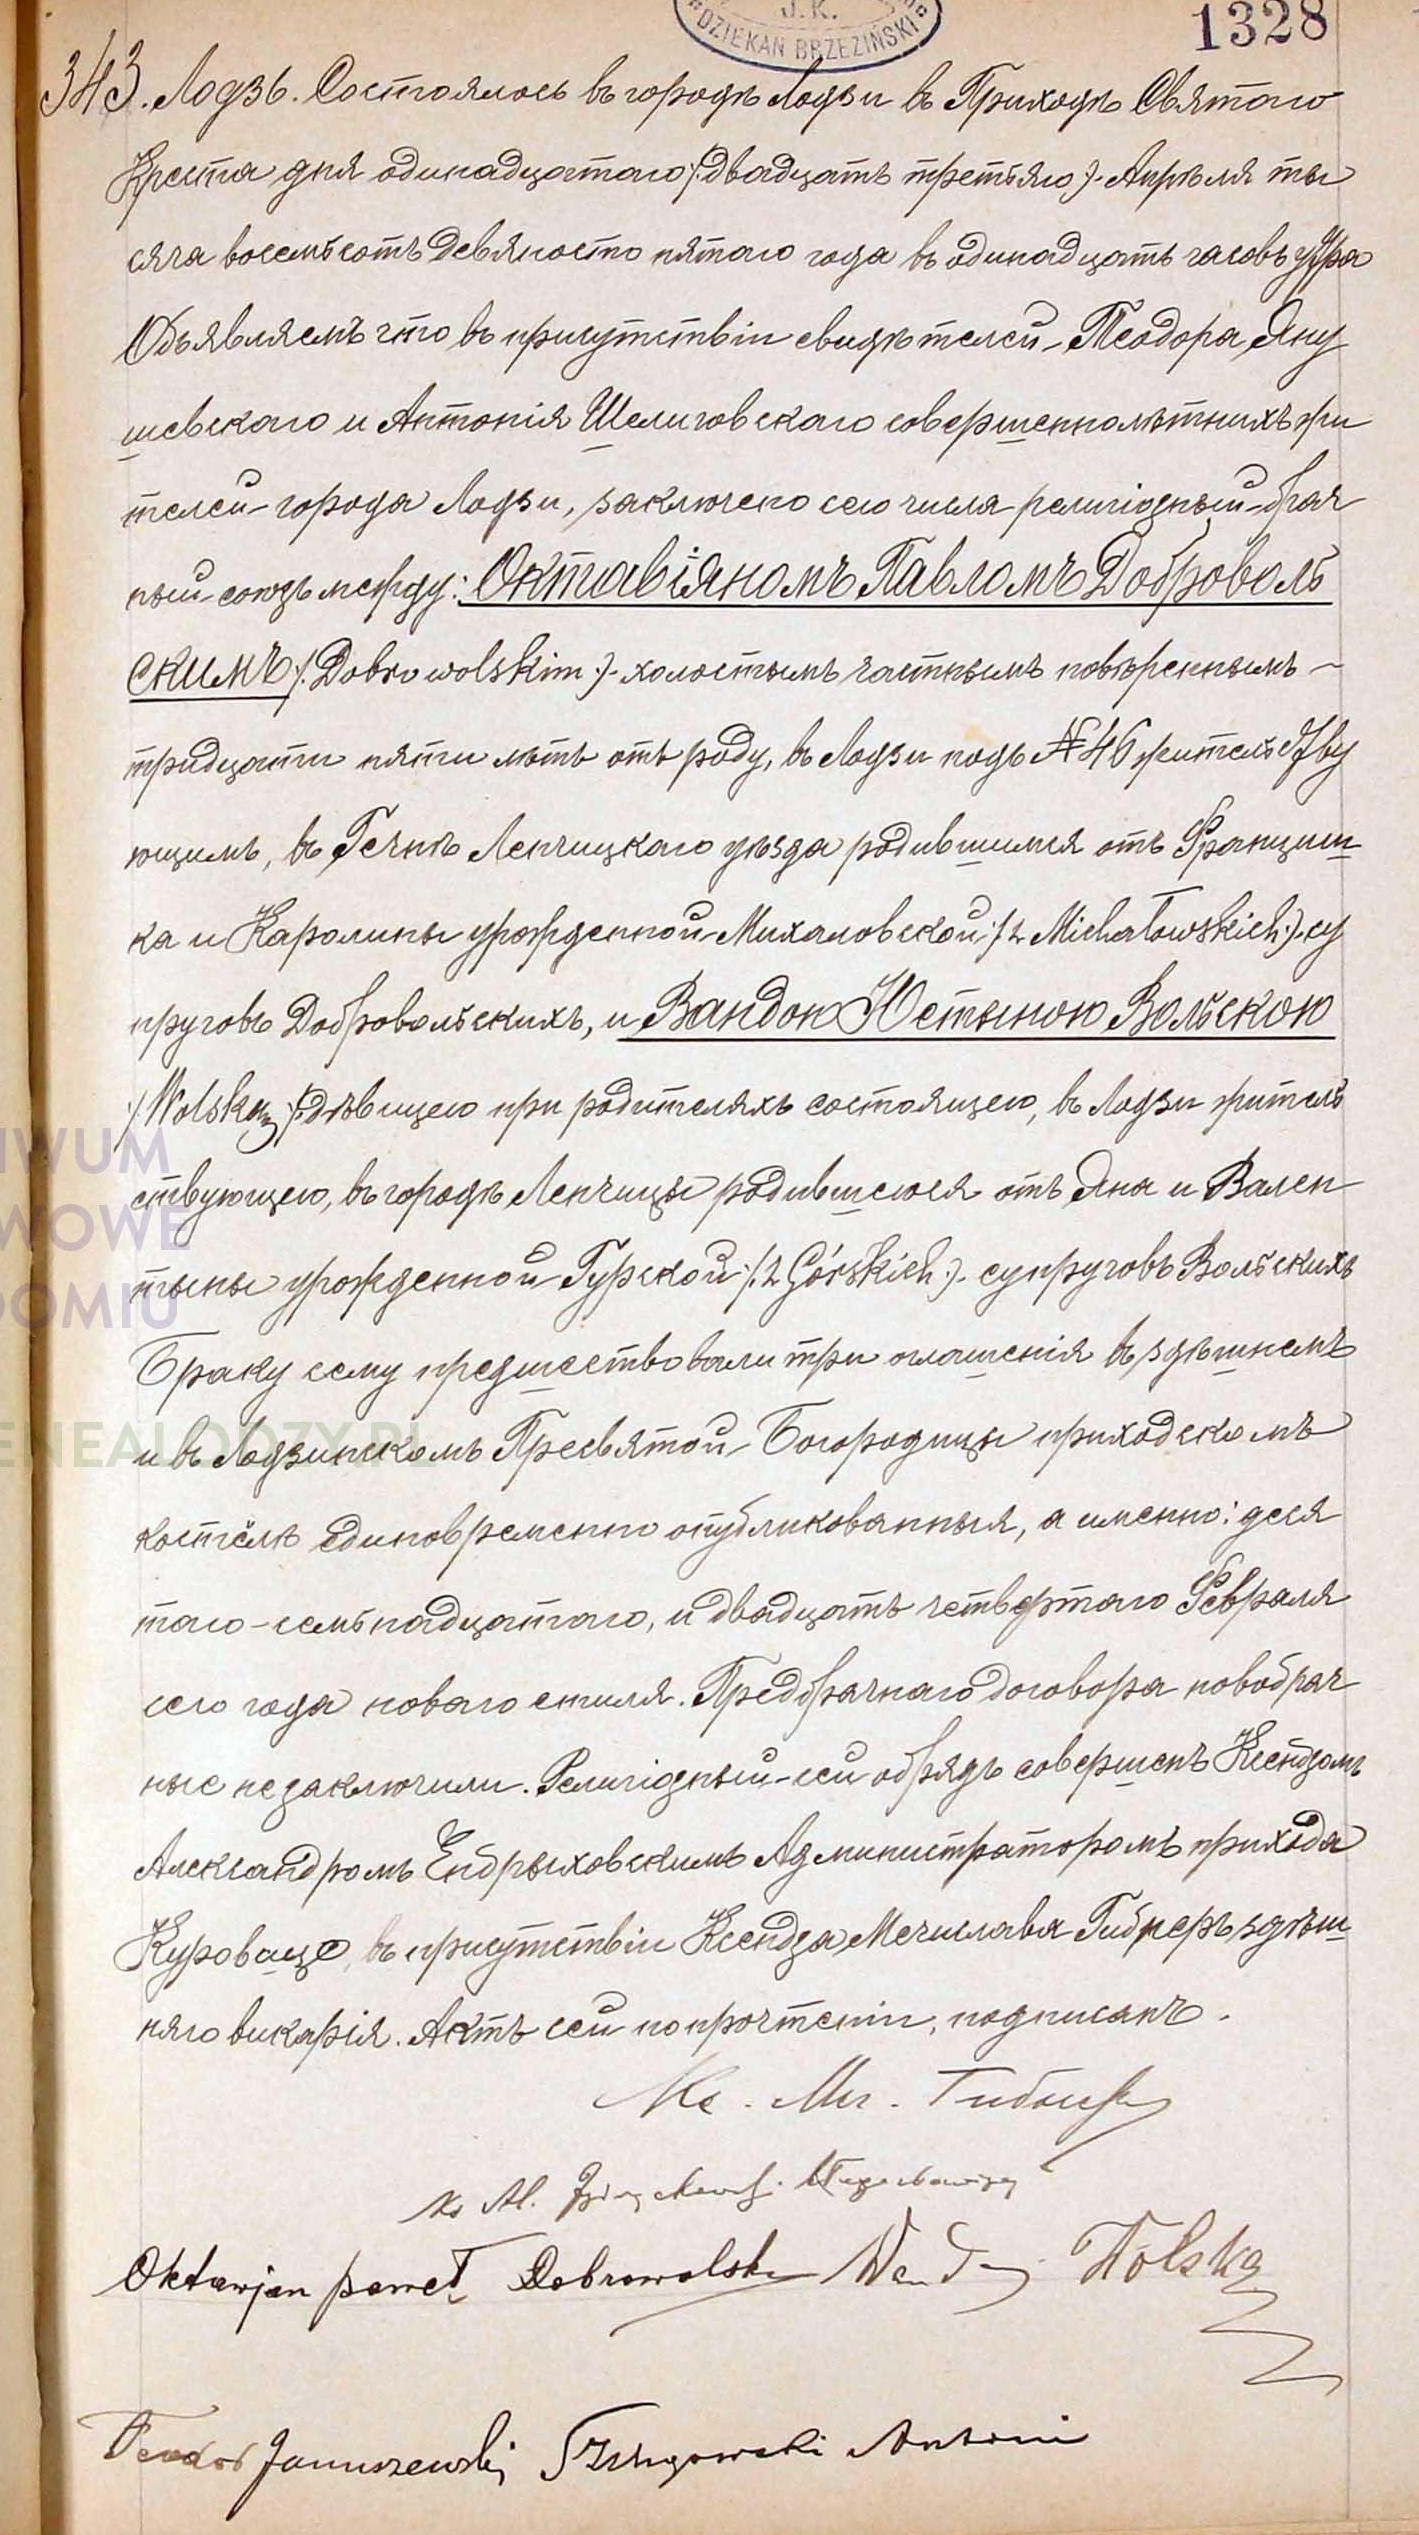 J. K.
DZIEKAN BRZEZIŃSKI
1328
343. Лодзь. Состоялось въ городѣ Лодзи въ Приходѣ Святаго
Креста дня одинадцатаго /:двадцать третьяго:/ Апрѣля ты
сяча восемьсотъ девяносто пятаго года въ одинадцать часовъ утра
Объявляемъ что въ присутствіи свидѣтелей Теодора Яну
шевскаго и Антонія Шелиговскаго совершеннолѣтнихъ жи
телей города Лодзи, заключено сего числа религіозный брач
ный союзъ между: Октавіяномъ Павломъ Доброволь
скимъ /:Dobrowolskim:/ холостымъ частнымъ повѣреннымъ –
тридцати пяти лѣтъ отъ роду, въ Лодзи подъ № 46 жительству
ющимъ, въ Гечнѣ Ленчицкаго уѣзда родившимся отъ Франциш
ка и Каролины урожденной Михаловской /:z Michałowskich:/ су
пруговъ Добровольскихъ, и Вандою Юстыною Вольскою
/:Wolską:/ дѣвицею при родителяхъ состоящею, въ Лодзи житель
ствующею, въ городѣ Ленчицы родившеюся отъ Яна и Вален
тыны урожденной Гурской /:z Górskich:/ супруговъ Вольскихъ
Браку сему предшествовали три оглашенія въ здѣшнемъ
и въ Лодзинскомъ Пресвятой Богородицы приходскомъ
костёлѣ единовременно опубликованныя, а именно: деся
таго – семьнадцатаго, и двадцать четвертаго Февраля
сего года новаго стиля. Предбрачнаго договора новобрач
ные не заключили. Религіозный сей обрядъ совершенъ Ксендзомъ
Александромъ Ендрыховскимъ Администраторомъ прихода
Куровице въ присутствіи Ксендза Мечислава Гибнеръ здѣш
няго викарія. Актъ сей по прочтеніи, подписанъ.
Кс. Ме.
Ks Al.
Oktawjan Paweł Dobrowolski Wanda Wolska
Teodor Januszewski Szeligowski Antoni
IWUM
WOWE
DOMIU
ENEALODZY.PL